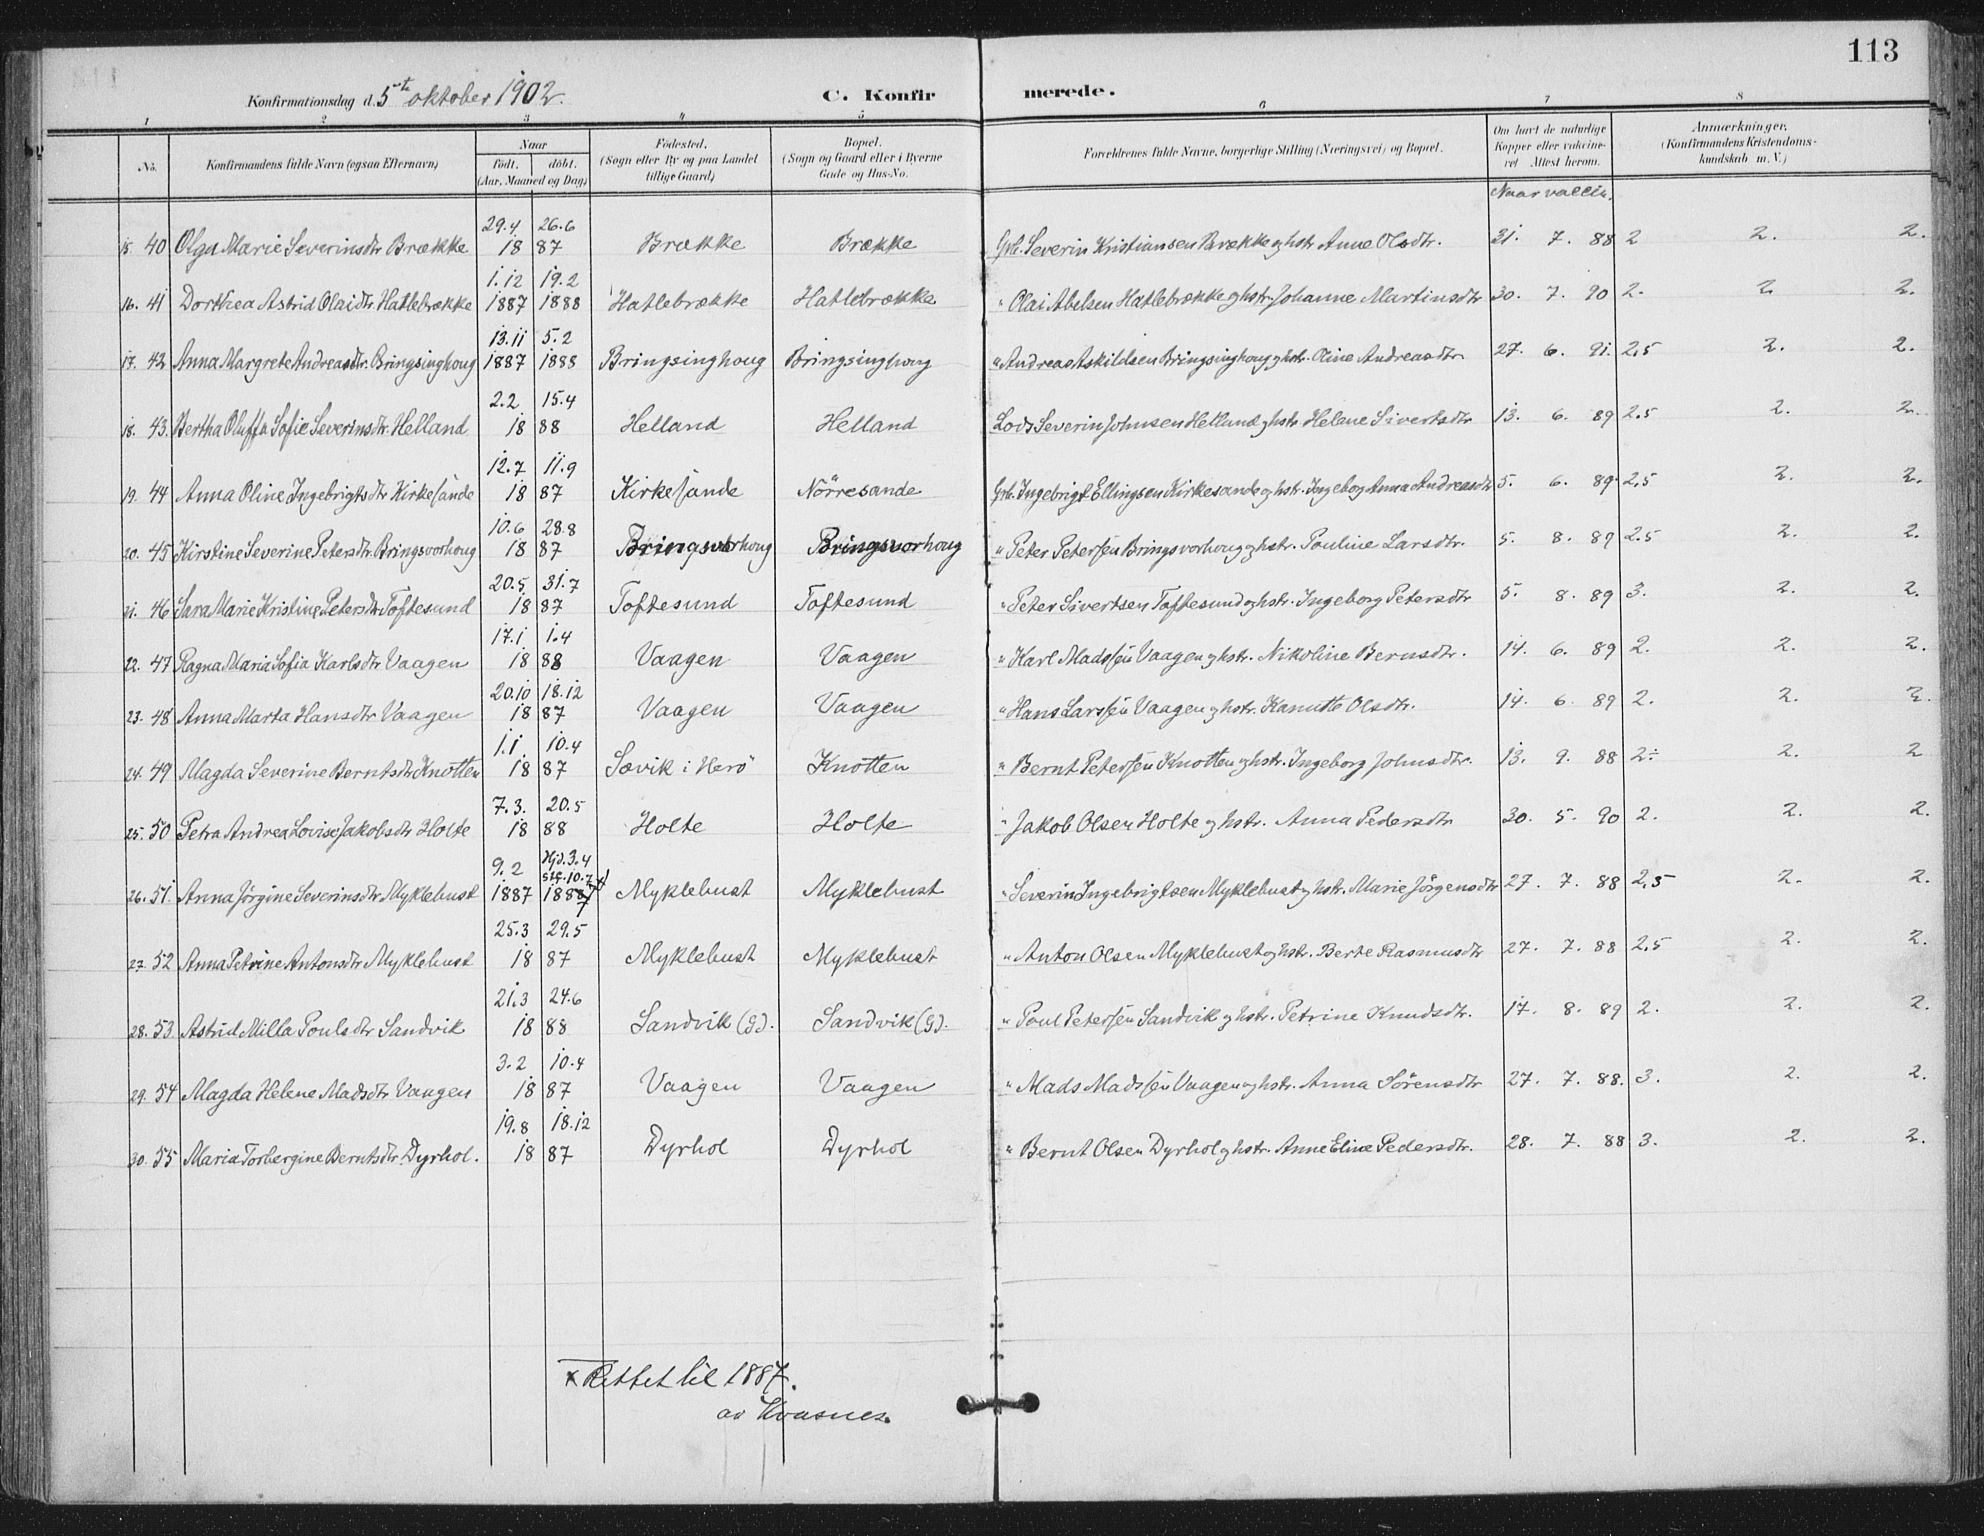 113
Konfirmationsdag d. 5te oktober 1902. C. Konfirmerede.
1 2 3 4 5 6 7 8
No. Konfirmandens fulde Navn (ogsaa Efternavn) Naar født. døbt. (Aar, Maaned og Dag) Fødested. (Sogn eller By og paa Landet tillige Gaard) Bopæl. (Sogn og Gaard eller i Byerne Gade og Hus-No. Forældrenes fulde Navne, borgerlige Stilling (Næringsvei) og Bopæl. Om havt de naturlige Kopper eller vakcineret Attest herom. Anmærkninger. (Konfirmandens Kristendomskundskab m. V.)
Naar vaccin.
15. 40 Olga Marie Severinsdtr Brække 29.4 1887 26.6 Brække Brække Grb. Severin Kristiansen Brække og hstr. Anne Olsdtr. 31. 7. 88 2 2. 2.
16. 41 Dorthea Astrid Olaidtr Hatlebrække 1.12 1887 19.2 1888 Hatlebrække Hatlebrække " Olai Abelsen Hatlebrække og hstr. Johanne Martinsdtr 30. 7. 90 2. 2 2.
17. 42 Anna Margrete Andreasdtr. Bringsinghoug 13.11 1887 5.2 1888 Bringsinghoug Bringsinghoug " Andreas Askildsen Bringsinghoug og hstr. Oline Andreasdtr. 27. 6. 91. 2,5 2. 2.
18. 43. Bertha Oluffa Sofie Severinsdtr. Helland 2.2 1888 15.4 Helland Helland Lods Severin Johnsen Helland og hstr. Helene Sivertsdtr 13. 6. 89 2,5 2. 2.
19. 44 Anna Oline Ingebrigtsdtr Kirkesande 12.7 1887 11.9 Kirkesande Nörresande Grb. Ingebrigt Ellingsen Kirkesande og hstr. Ingeborg Anna Andreasdtr 5. 6. 89. 2,5 2. 2.
20. 45 Kirstine Severine Petersdtr. Bringsvorhoug 10.6 1887 28.8 Bringsvorhoug Bringsvorhoug " Peter Petersen Bringsvorhoug og hstr. Pouline Larsdtr. 5. 8. 89 2.5 2. 2.
21. 46 Sara Marie Kristine Petersdtr Toftesund 20.5 1887 31.7 Toftesund Toftesund " Peter Sivertsen Toftesund og hstr. Ingeborg Petersdtr 5. 8. 89 3. 2. 2.
22. 47 Ragna Maria Sofia Karlsdtr Vaagen 17.1 1888 1.4 Vaagen Vaagen " Karl Madssen Vaagen og hstr. Nikoline Berntsdtr. 14. 6. 89 2. 2. 2.
23. 48 Anna Marta Hansdtr Vaagen 20.10 1887 18.12 Vaagen Vaagen " Hans Larssen Vaagen og hstr. Kanutte Olsdtr. 14. 6. 89 2. 2. 2.
24. 49 Magda Severine Berntsdtr Knotten 1.1 1887 10.4 Sævik i Herö Knotten " Bernt Petersen Knotten og hstr. Ingeborg Johnsdtr. 13. 9. 88 2÷ 2. 2
25. 50 Petra Andrea Lovise Jakobsdtr Holte 7.3. 1888 20.5 Holte Holte " Jakob Olsen Holte og hstr. Anna Pedersdtr 30. 5. 90 2. 2. 2.
26. 51. Anna Jørgine Severinsdtr Myklebust 9.2 1887 Hjd. 3.4 stf. 10.7 1888 7 x Myklebust Myklebust " Severin Ingebrigtsen Myklebust og hstr. Marie Jörgensdtr 27. 7. 88 2,5 2. 2.
27. 52 Anna Petrine Antonsdtr Myklebust 25.3 1887 29.5 Myklebust Myklebust " Anton Olsen Myklebust og hstr. Berte Rasmusdtr 27. 7. 88 2,5 2. 2.
28. 53. Astrid Milla Poulsdtr Sandvik 21.3 1888 24.6 Sandvik (G). Sandvik (G). " Poul Petersen Sandvik og hstr. Petrine Knudsdtr. 17. 8. 89 2. 2. 2.
29. 54 Magda Helene Madsdtr Vaagen 3.2 1887 10.4 Vaagen Vaagen " Mads Madssen Vaagen og hstr. Anna Sörensdtr 27. 7. 88. 3. 2. 2.
30. 55 Maria Torbergine Berntsdtr. Dyrhol. 19.8 1887 18.12 Dyrhol Dyrhol " Bernt Olsen Dyrhol og hstr. Anne Eline Pedersdtr. 28. 7. 88 3. 2. 2.
x Rettet til 1887.
av Kvasnes.